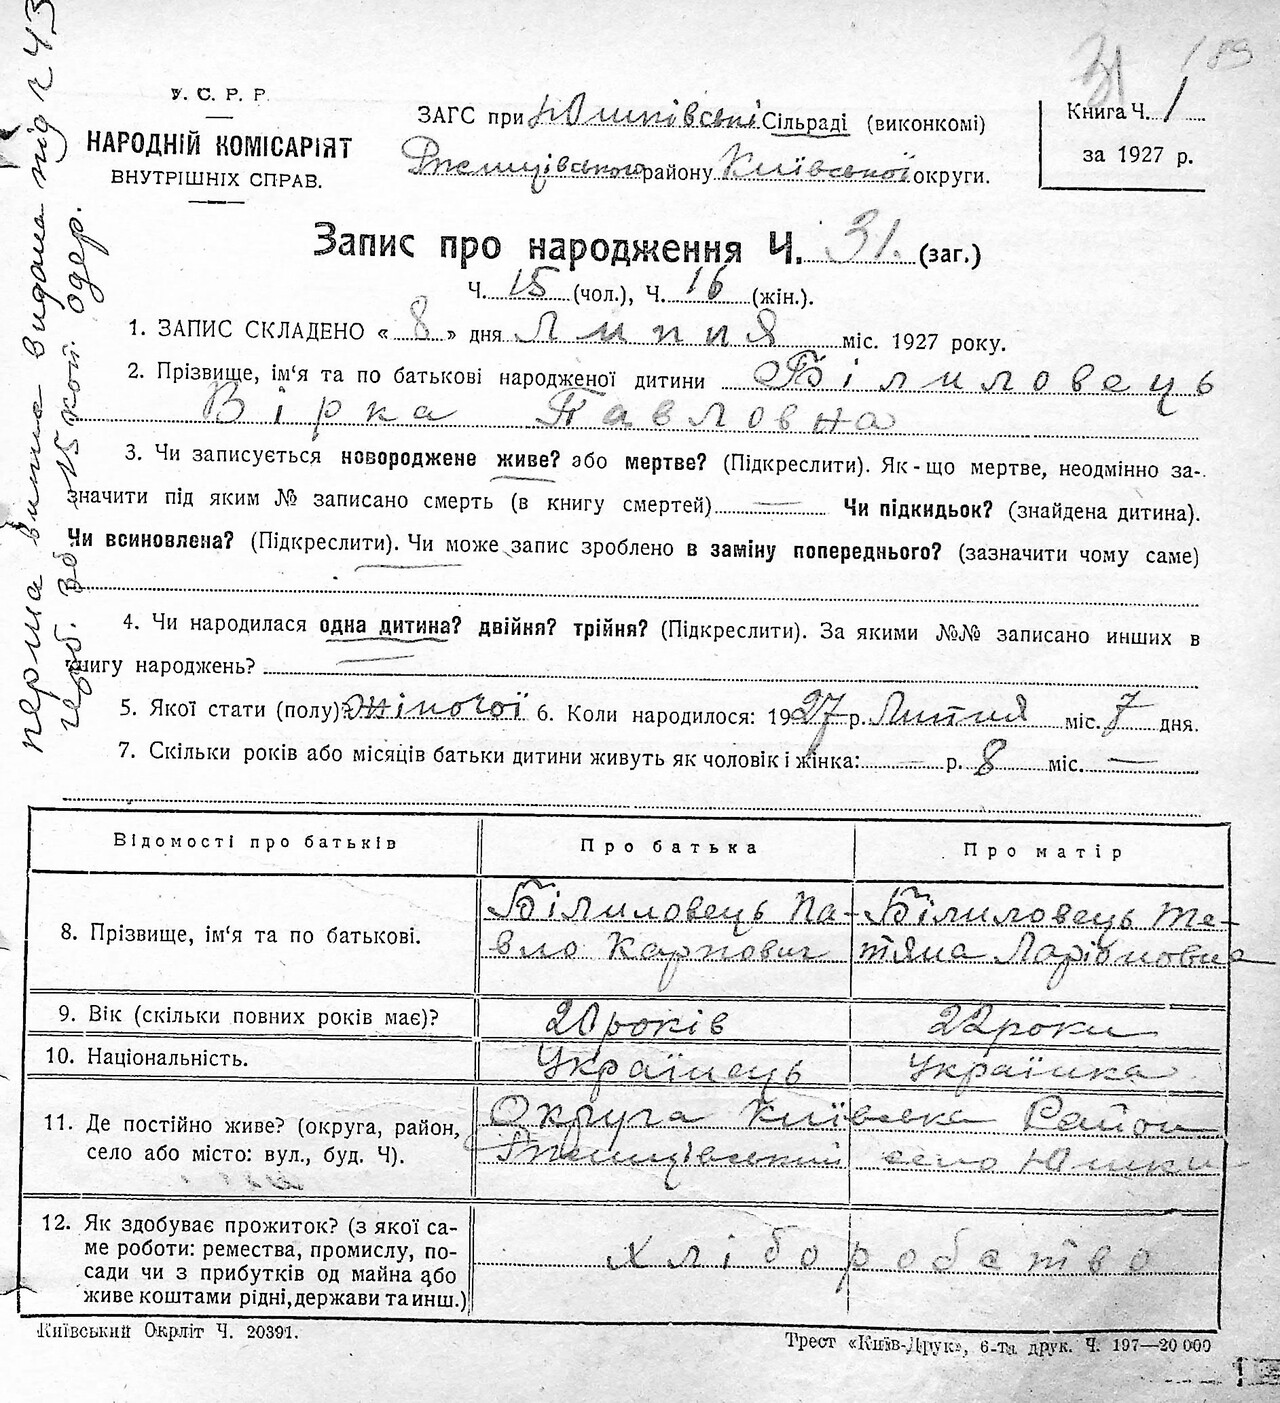 31 189
У. С. Р. Р.
НАРОДНІЙ КОМІСАРІЯТ
ВНУТРІШНІХ СПРАВ.
ЗАГС при Юшківські Сільраді (виконкомі)
Ржищівського району Київської округи.
Книга Ч. 1
за 1927 р.
Запис про народження Ч. 31. (заг.)
Ч. 15 (чол.), Ч. 16 (жін.).
1. ЗАПИС СКЛАДЕНО « 8 » дня Липня міс. 1927 року.
2. Прізвище, ім'я та по батькові народженої дитини Білиловець
Вірка Павловна
3. Чи записується новороджене живе? або мертве? (Підкреслити). Як-що мертве, неодмінно за-
значити під яким № записано смерть (в книгу смертей) — Чи підкидьок? (знайдена дитина).
Чи всиновлена? (Підкреслити). Чи може запис зроблено в заміну попереднього? (зазначити чому саме)
4. Чи народилася одна дитина? двійня? трійня? (Підкреслити). За якими №№ записано инших в
книгу народжень?
5. Якої стати (полу)? жіночої 6. Коли народилося: 1927 р. Липня міс. 7 дня.
7. Скільки років або місяців батьки дитини живуть як чоловік і жінка: — р. 8 міс. —
Відомості про батьків
Про батька
Про матір
8. Прізвище, ім'я та по батькові.
Білиловець Па-
вло Карпович
Білиловець Те-
тяна Ларіоновна
9. Вік (скільки повних років має)?
20 років
22 роки
10. Національність.
Українець
Українка
11. Де постійно живе? (округа, район,
село або місто: вул., буд. Ч).
Округа Київська Район
Ржищівський село Юшки
12. Як здобуває прожиток? (з якої са-
ме роботи: ремества, промислу, по-
сади чи з прибутків од майна або
живе коштами рідні, держави та инш.)
хліборобство
Київський Окрліт Ч. 20391.
Трест «Київ-Друк», 6-та друк. Ч. 197—20 000
перша випис видана під ч 43
герб. зб 15 коп. одер.